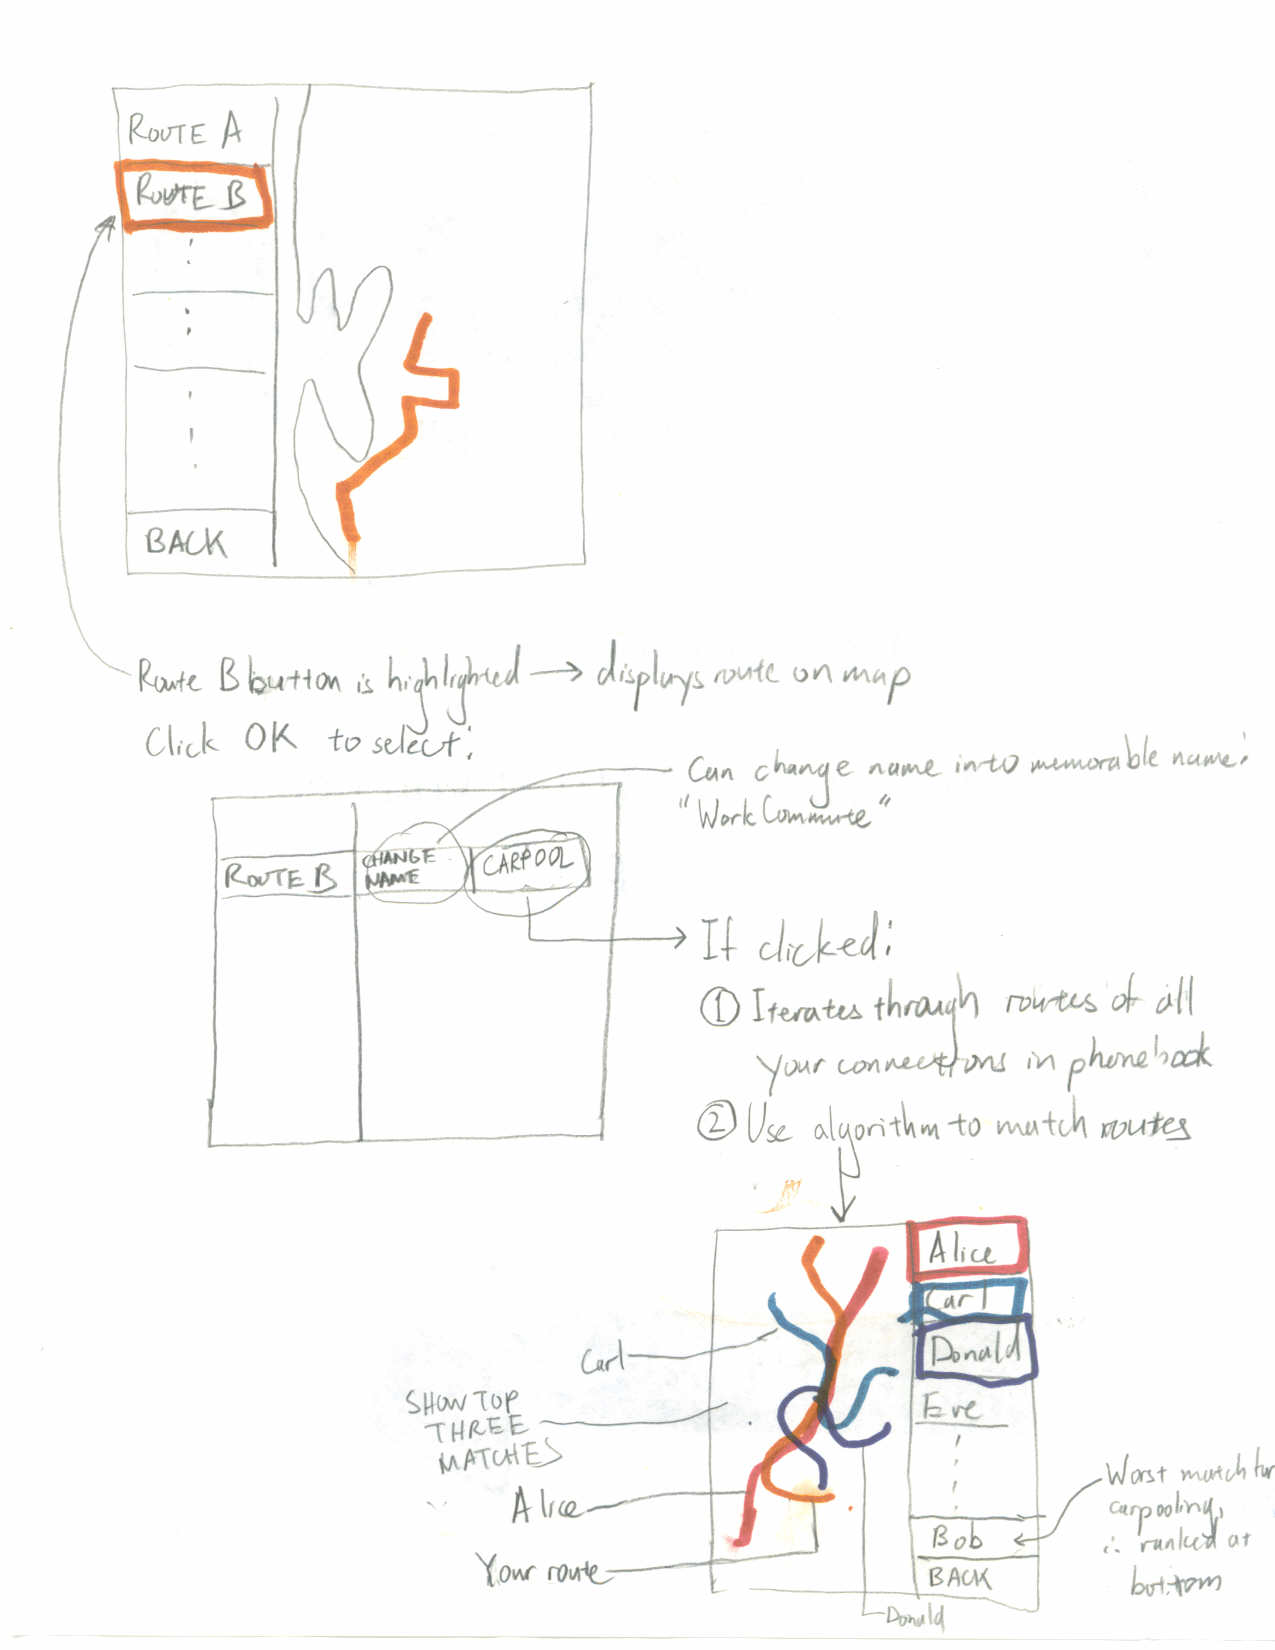 ROUTE A
ROUTE B
BACK
Route B button is highlighted → displays route on map
Click OK to select:
Can change name into memorable name:
"Work Commute"
ROUTE B
CHANGE
NAME
CARPOOL
If clicked:
① Iterates through routes of all
your connections in phonebook
② Use algorithm to match routes
Alice
Carl
Donald
Eve
Bob
BACK
Carl
SHOW TOP
THREE
MATCHES
Alice
Your route
Donald
Worst match for
carpooling,
∴ ranked at
bottom